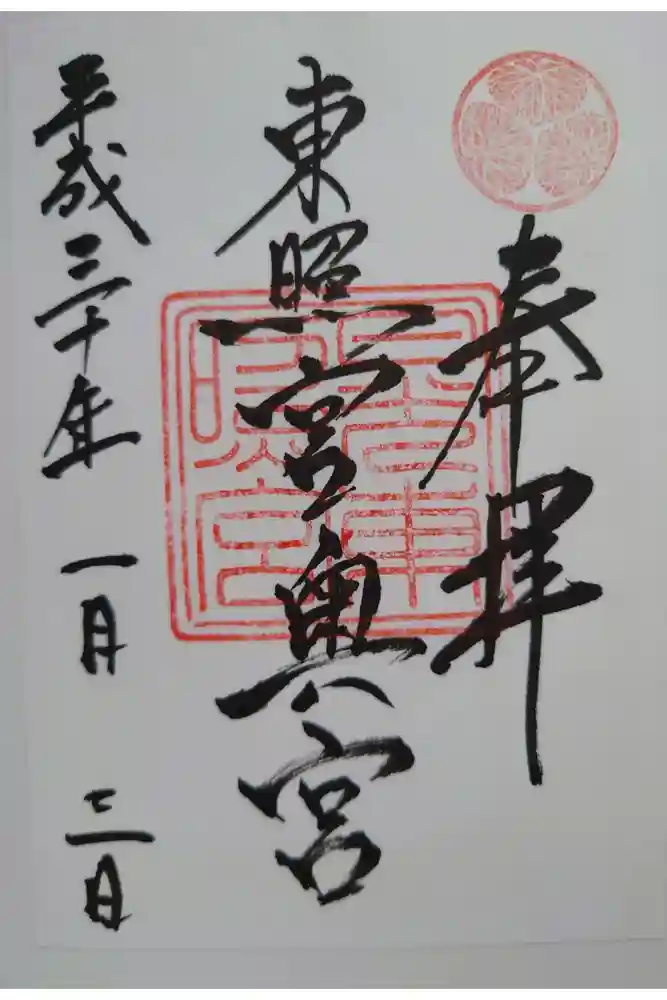 奉拝
東照宮奥宮
平成三十年 一月 三日